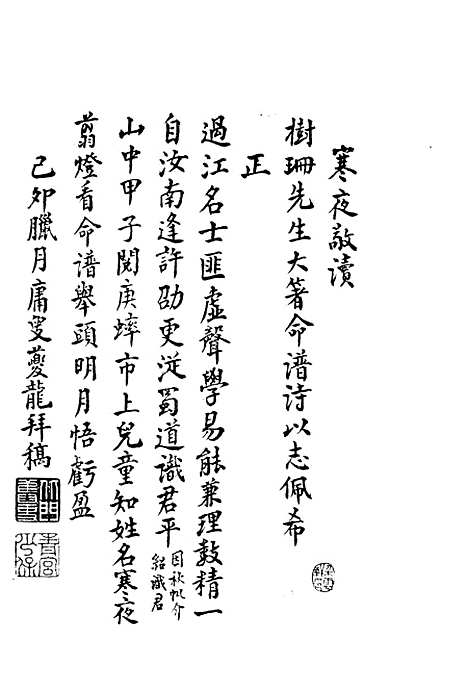 寒夜敬讀
樹珊先生大著命譜詩以志佩希
正
過江名士匪虛聲學易能兼理數精一
自汝南逢許劭更從蜀道識君平因秋帆介
紹識君
山中甲子閱庚蟀市上兒童知姓名寒夜
翦燈看命譜舉頭明月悟虧盈
己卯臘月庸叟夔龍拜稿